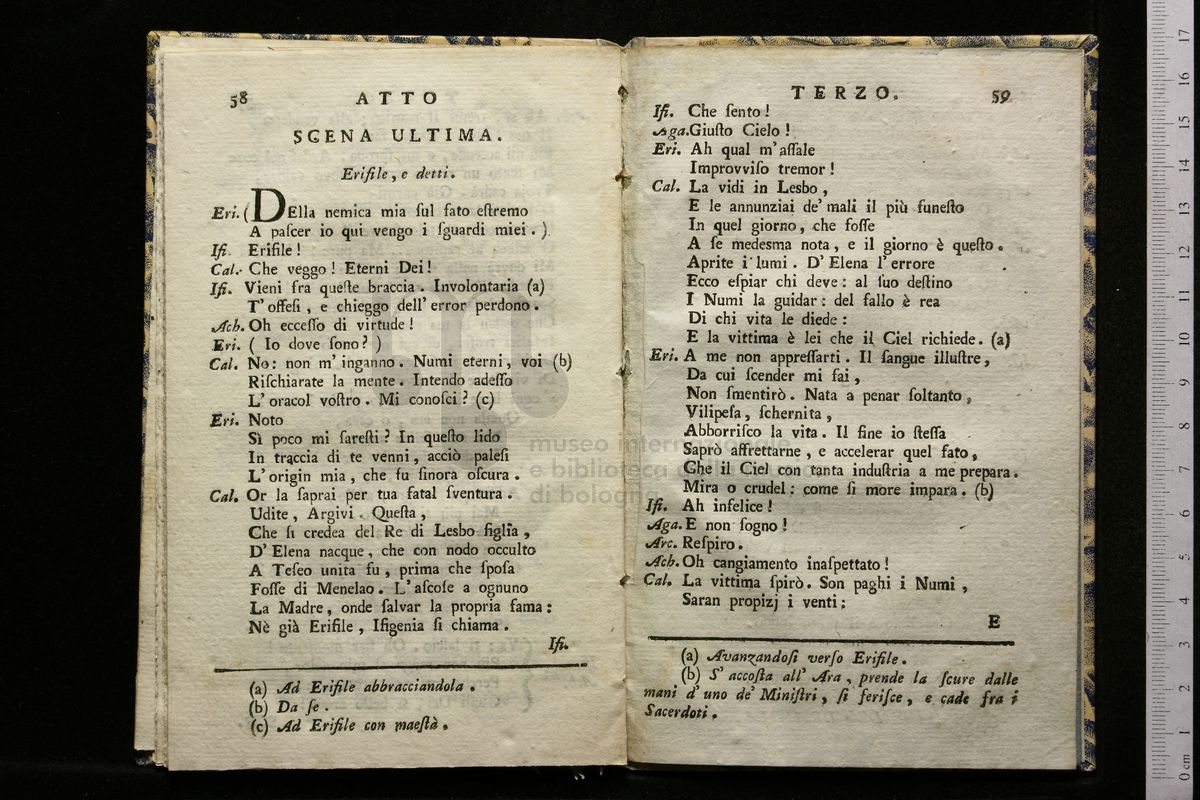 58 ATTO
SCENA ULTIMA.
Erifile, e detti.
Eri. (DElla nemica mia ſul fato eſtremo
A paſcer io qui vengo i ſguardi miei. )
Ifi. Erifile!
Cal. Che veggo! Eterni Dei!
Ifi. Vieni fra queſte braccia. Involontaria (a)
T' offeſi, e chieggo dell' error perdono.
Ach. Oh ecceſſo di virtude!
Eri. ( Io dove ſono? )
Cal. No: non m' inganno. Numi eterni, voi (b)
Riſchiarate la mente. Intendo adeſſo
L' oracol voſtro. Mi conoſci? (c)
Eri. Noto
Sì poco mi ſareſti? In queſto lido
In traccia di te venni, acciò paleſi
L' origin mia, che fu ſinora oſcura.
Cal. Or la ſaprai per tua fatal ſventura.
Udite, Argivi. Queſta,
Che ſi credea del Re di Lesbo figlia,
D' Elena nacque, che con nodo occulto
A Teſeo unita fu, prima che ſpoſa
Foſſe di Menelao. L' aſcoſe a ognuno
La Madre, onde ſalvar la propria fama:
Nè già Erifile, Ifigenia ſi chiama.
Ifi.
(a) Ad Erifile abbracciandola.
(b) Da ſe.
(c) Ad Erifile con maeſtà.
TERZO. 59
Ifi. Che ſento!
Aga. Giuſto Cielo!
Eri. Ah qual m' aſſale
Improvviſo tremor!
Cal. La vidi in Lesbo,
E le annunziai de' mali il più funeſto
In quel giorno, che foſſe
A ſe medesma nota, e il giorno è queſto.
Aprite i lumi. D' Elena l' errore
Ecco eſpiar chi deve: al ſuo deſtino
I Numi la guidar: del fallo è rea
Di chi vita le diede:
E la vittima è lei che il Ciel richiede. (a)
Eri. A me non appreſſarti. Il ſangue illuſtre,
Da cui ſcender mi fai,
Non ſmentirò. Nata a penar ſoltanto,
Vilipeſa, ſchernita,
Abborriſco la vita. Il fine io ſteſſa
Saprò affrettarne, e accelerar quel fato,
Che il Ciel con tanta induſtria a me prepara.
Mira o crudel: come ſi more impara. (b)
Ifi. Ah infelice!
Aga. E non ſogno!
Arc. Reſpiro.
Ach. Oh cangiamento inaſpettato!
Cal. La vittima ſpirò. Son paghi i Numi,
Saran propizj i venti;
E
(a) Avanzandoſi verſo Erifile.
(b) S' accoſta all' Ara, prende la ſcure dalle
mani d' uno de' Miniſtri, ſi feriſce, e cade fra i
Sacerdoti.
museo internazionale
e biblioteca
di bologna
0 cm 1 2 3 4 5 6 7 8 9 10 11 12 13 14 15 16 17